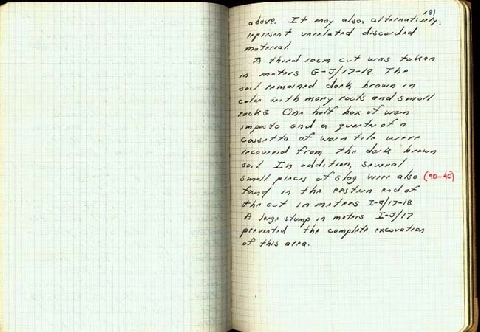 181
above. It may also, alternatively,
represent unrelated discarded
material.
A third 10cm cut was taken
in meters G-J/17-18 The
soil remained dark brown in
color with many rocks and small
rocks One half box of worn
impasto and a quarter of a
cassetta of worn tile were
recovered from the dark brown
soil In addition, several
small pieces of slag were also (90-90)
found in the eastern end of
the cut in metres I-J/17-18
A large stump in metres I-J/17
prevented the complete excavation
of this area.